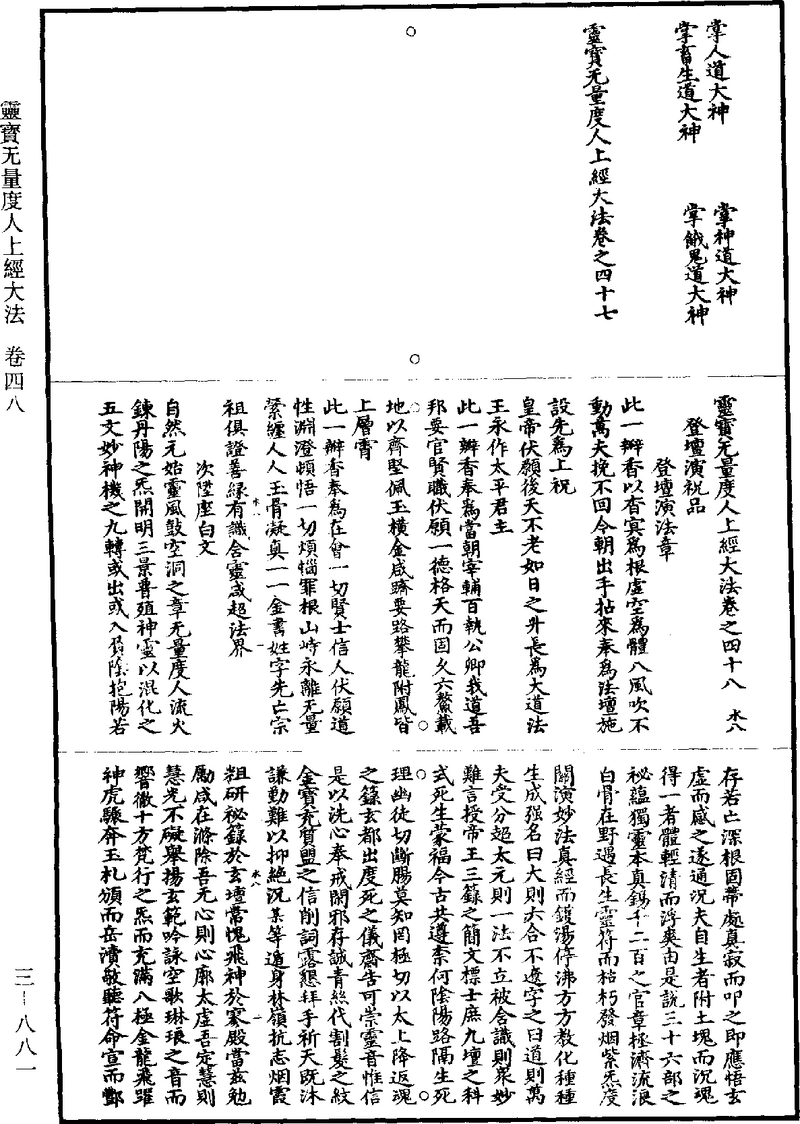 掌人道大神　掌神道大神
掌畜生道大神　掌餓鬼道大神
靈寶无量度人上經大法卷之四十七
靈寶无量度人上經大法卷之四十八　水八
登壇演祝品
登壇演法章
此一辦香以杳冥爲根虛空爲體八風吹不
動萬夫挽不回今朝出手拈來奉爲法壇施
設先爲上祝
皇帝伏願後天不老如日之升長爲大道法
王永作太平君主
此一辦香奉爲當朝宰輔百執公卿我道吾
邦要官賢職伏願一德格天而固久六鰲戴
地以齊堅佩玉橫金咸躋要路攀龍附鳳皆
上層霄
此一辦香奉爲在會一切賢士信人伏願道
性淵澄頓悟一切煩惱罪根山峙永離无量
縈纏人人玉骨凝真一一金書姓字先亡宗
祖俱證善緣有識含靈咸超法界
次陞座白文
自然元始靈風鼓空洞之章无量度人流火
鍊丹陽之炁開明三景普殖神靈以混化之
五文妙神機之九轉或出或入負陰抱陽若
存若亡深根固蔕處真寂而叩之即應悟玄
虛而感之遂通況夫自生者附土塊而沉魂
得一者體輕清而濟爽由是說三十六部之
秘蘊獨靈本真錫千二百之官章拯濟流浪
白骨在野遇長生靈符而枯朽發烟紫炁度
關演妙法真經而鑊湯停沸方方教化種種
生成强名曰大則六合不遺字之曰道則萬
夫受分超太元則一法不立被含識則衆妙
難言授帝王三籙之簡文標士庶九壇之科
式死生蒙福今古共遵柰何陰陽路隔生死
理幽徒切斷腸莫知罔極切以太上降返魂
之籙玄都出度死之儀齋告可崇靈音惟信
是以洗心奉戒閑邪存誠青絲代割髮之紋
金寶充質盟之信削詞露懇拜手祈天既沐
謙勤難以抑絕況某等遁身林嶺抗志烟霞
粗研秘籙於玄壇當愧飛神於寥殿當兹勉
勵咸在滌除吾无心則心廓太虛吾定慧則
慧光不礙舉揚玄範吟詠空歌琳琅之音而
響徹十方梵行之炁而充滿八極金龍飛躍
神虎驟奔玉札頒而岳瀆敬聽符命宣而酆
靈寶无量度人上經大法　卷四八
三－八八一
水八
一
水八
一